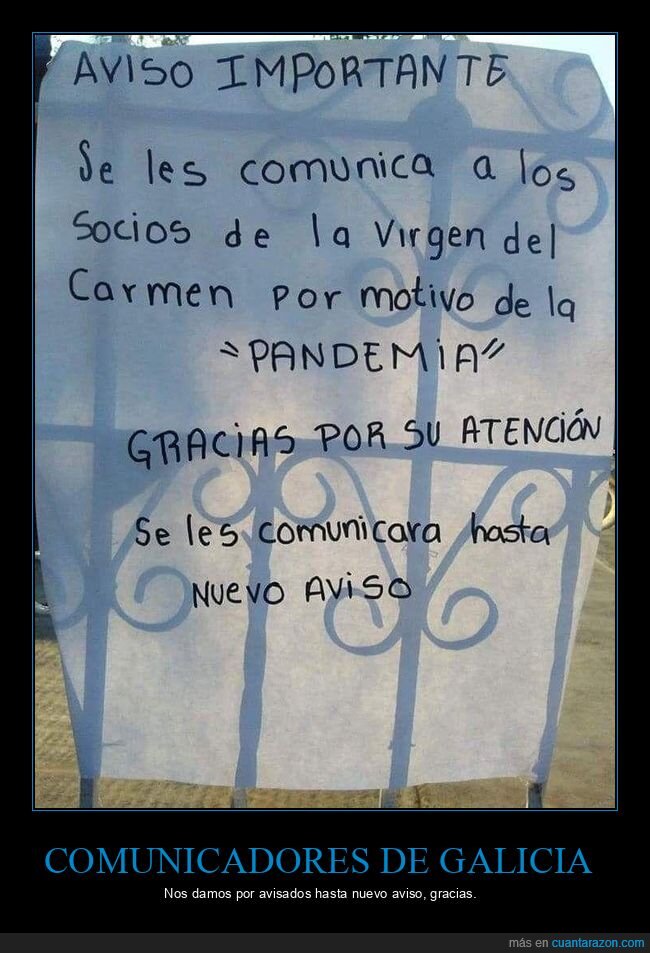 AVISO IMPORTANTE
Se les comunica a los
Socios de la Virgen del
Carmen por motivo de la
"PANDEMiA"
GRACiAS POR SU ATENCiÓN
Se les comunicara hasta
NUEVO AViSO
COMUNICADORES DE GALICIA
Nos damos por avisados hasta nuevo aviso, gracias.
más en cuantarazon.com